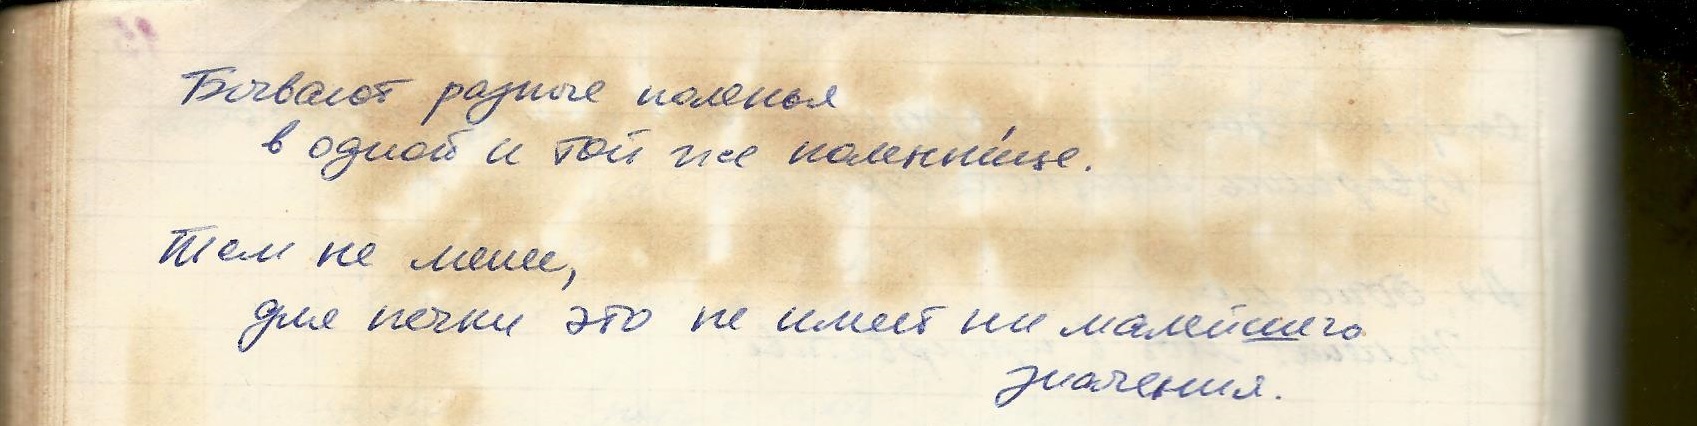 Бывают разные поленья
в одной и той же поленни́це.
Тем не менее,
для печки это не имеет ни малейшего
значения.